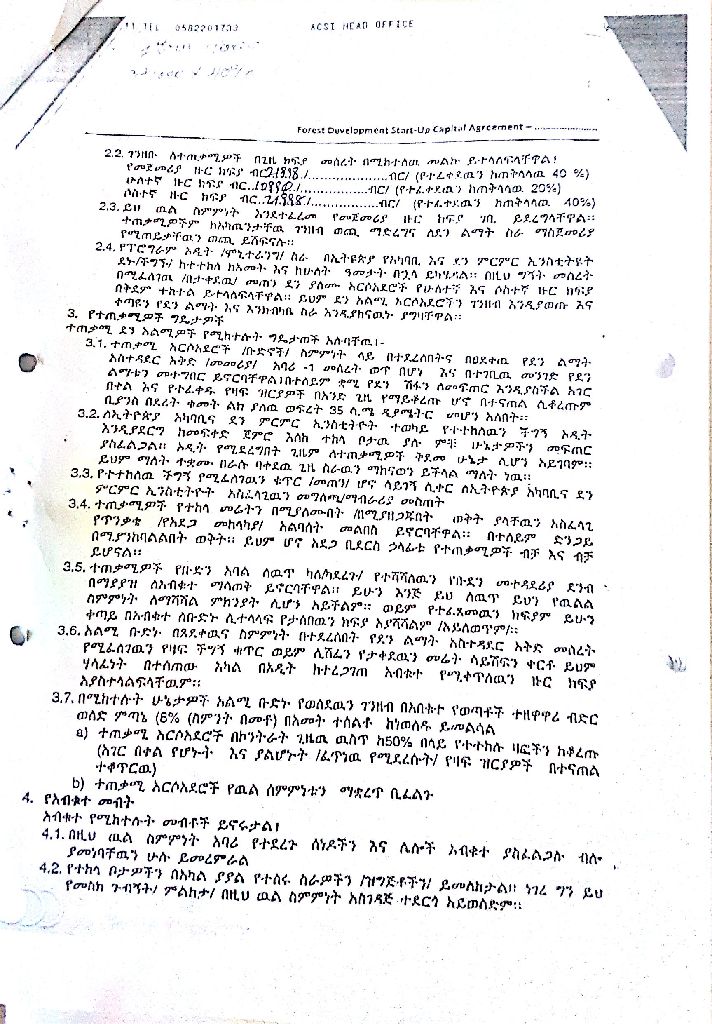 TEL 0582201733 ACSI HEAD OFFICE
Forest Development Start-Up Capital Agreement – ....................
2.2. ገንዘቡ ለተጠቃሚዎች በጊዜ ክፍያ መሰረት በሚከተለዉ መልኩ ይተላለፍላቸዋል፤
የመጀመሪያ ዙር ክፍያ ብር 21998./....................ብር/ (የተፈቀደዉን ከጠቅላላዉ 40 %)
ሁለተኛ ዙር ክፍያ ብር..10990./....................ብር/ (የተፈቀደዉን ከጠቅላላዉ 20%)
ሶስተኛ ዙር ክፍያ ብር..21998/....................ብር/ (የተፈቀደዉን ከጠቅላላዉ 40%)
2.3. ይህ ዉል ስምምነት እንደተፈረመ የመጀመሪያ ዙር ክፍያ ገቢ ይደረግላቸዋል፡፡
ተጠቃሚዎችም ከአካዉንታቸዉ ገንዘብ ወጪ ማድረግና ለደን ልማት ስራ ማስጀመሪያ
የሚጠይቃቸዉን ወጪ ይሸፍናሉ፡፡
2.4. የፕሮግራም ኦዲት /ሞኒተሪንግ/ ስራ በኢትዮጵያ የአካባቢ እና ደን ምርምር ኢንስቲትዩት
ደኑ/ችግኙ/ ከተተከለ ከአመት እና ከሁለት ዓመታት በኋላ ይካሄዳል፡፡ በዚህ ግኝት መሰረት
በሚፈለገዉ /በታቀደዉ/ መጠን ደን ያለሙ አርሶአደሮች የሁለተኛ እና ሶስተኛ ዙር ክፍያ
በቅደም ተከተል ይተላለፍላቸዋል፡፡ ይህም ደን አልሚ አርሶአደሮችን ገንዘብ እንዲያወጡ እና
ቀጣዩን የደን ልማት እና እንክብካቤ ስራ እንዲያከናዉኑ ያግዛቸዋል፡፡
3. የተጠቃሚዎች ግዴታዎች
ተጠቃሚ ደን አልሚዎች የሚከተሉት ግዴታዎች አሉባቸዉ፤-
3.1. ተጠቃሚ አርሶአደሮች /ቡድኖች/ ስምምነት ላይ በተደረሰበትና በፀደቀዉ የደን ልማት
አስተዳደር እቅድ /መመሪያ/ አባሪ -1 መሰረት ወጥ በሆነ እና በተገቢዉ መንገድ የደን
ልማቱን መተግበር ይኖርባቸዋል፤በተለይም ቋሚ የደን ሽፋን ለመፍጠር እንዲያስችል አገር
በቀል እና የተፈቀዱ የዛፍ ዝርያዎች በአንድ ጊዜ የማይቆረጡ ሆኖ በተናጠል ሲቆረጡም
ቢያንስ በደረት ቁመት ልክ ያለዉ ወፍረት 35 ሲ.ሜ ዲያሜትር መሆን አለበት፡፡
3.2.ለኢትዮጵያ አካባቢና ደን ምርምር ኢንስቲትዮት ተወካይ የተተከለዉን ችግኝ ኦዲት
እንዲያደርግ ከመፍቀድ ጀምሮ እስከ ተከላ ቦታዉ ያሉ ምቹ ሁኔታዎችን መፍጠር
ያስፈልጋል፡፡ ኦዲት የሚደረግበት ጊዜም ለተጠቃሚዎች ቅድመ ሁኔታ ሊሆን አይገባም፡፡
ይህም ማለት ተቋሙ በራሱ ባቀደዉ ጊዜ ስራዉን ማከናወን ይችላል ማለት ነዉ፡፡
3.3. የተተከለዉ ችግኝ የሚፈለገዉን ቁጥር /መጠን/ ሆኖ ሳይገኝ ሲቀር ለኢትዮጵያ አካባቢና ደን
ምርምር ኢንስቲትዮት አስፈላጊዉን መግለጫ/ማብራሪያ መስጠት
3.4. ተጠቃሚዎች የተከላ መሬትን በሚያለሙበት /በሚያዘጋጁበት ወቅት ያላቸዉን አስፈላጊ
የጥንቃቄ /የአደጋ መከላከያ/ አልባሳት መልበስ ይኖርባቸዋል፡፡ በተለይም ድንጋይ
በሚያንከባልልበት ወቅት፡፡ ይህም ሆኖ አደጋ ቢደርስ ኃላፊቱ የተጠቃሚዎች ብቻ እና ብቻ
ይሆናል፡፡
3.5. ተጠቃሚዎች የቡድን አባል ለዉጥ ካለ/ካደረጉ/ የተሻሻለዉን የቡድን መተዳደሪያ ደንብ
በማያያዝ ለአብቁተ ማሳወቅ ይኖርባቸዋል፡፡ ይሁን እንጅ ይህ ለዉጥ ይህን የዉልል
ስምምነት ለማሻሻል ምክንያት ሊሆን አይችልም፡፡ ወይም የተፈጸመዉን ክፍያም ይሁን
ቀጣይ በአብቁተ ለቡድኑ ሊተላለፍ የታሰበዉን ክፍያ አያሻሽልም /አይለወጥም/፡፡
3.6. አልሚ ቡድኑ በጸደቀዉና ስምምነት በተደረሰበት የደን ልማት አስተዳደር እቅድ መሰረት
የሚፈለገዉን የዛፍ ችግኝ ቁጥር ወይም ሊሸፈን የታቀደዉን መሬት ሳይሸፍን ቀርቶ ይህም
ሃላፊነት በተሰጠው አካል በኦዲት ከተረጋገጠ አብቁተ የሚቀጥለዉን ዙር ክፍያ
አያስተላልፍላቸዉም፡፡
3.7. በሚከተሉት ሁኔታዎች አልሚ ቡድኑ የወሰደዉን ገንዘብ በአበቁተ የወጣቶች ተዘዋዋሪ ብድር
ወለድ ምጣኔ (8% (ስምንት በመቶ) በአመት ተሰልቶ ከነወለዱ ይመልሳል
a) ተጠቃሚ አርሶአደሮች በኮንትራት ጊዜዉ ዉስጥ ከ50% በላይ የተተከሉ ዛፎችን ከቆረጡ
(አገር በቀል የሆኑት እና ያልሆኑት /ፈጥነዉ የሚደረሱት/ የዛፍ ዝርያዎች በተናጠል
ተቆጥርዉ)
b) ተጠቃሚ አርሶአደሮች የዉል ስምምነቱን ማቋረጥ ቢፈልጉ
4. የአብቁተ መብት
አብቁተ የሚከተሉት መብቶች ይኖሩታል፤
4.1. በዚህ ዉል ስምምነት አባሪ የተደረጉ ሰነዶችን እና ሌሎች አብቁተ ያስፈልጋሉ ብሎ
ያመነባቸዉን ሁሉ ይመረምራል
4.2. የተከላ ቦታዎችን በአካል ያያል የተሰሩ ስራዎችን /ዝግጅቶችን/ ይመለከታል፡፡ ነገረ ግን ይህ
የመስክ ጉብኝት/ ምልከታ/ በዚህ ዉል ስምምነት አስገዳጅ ተደርጎ አይወሰድም፡፡